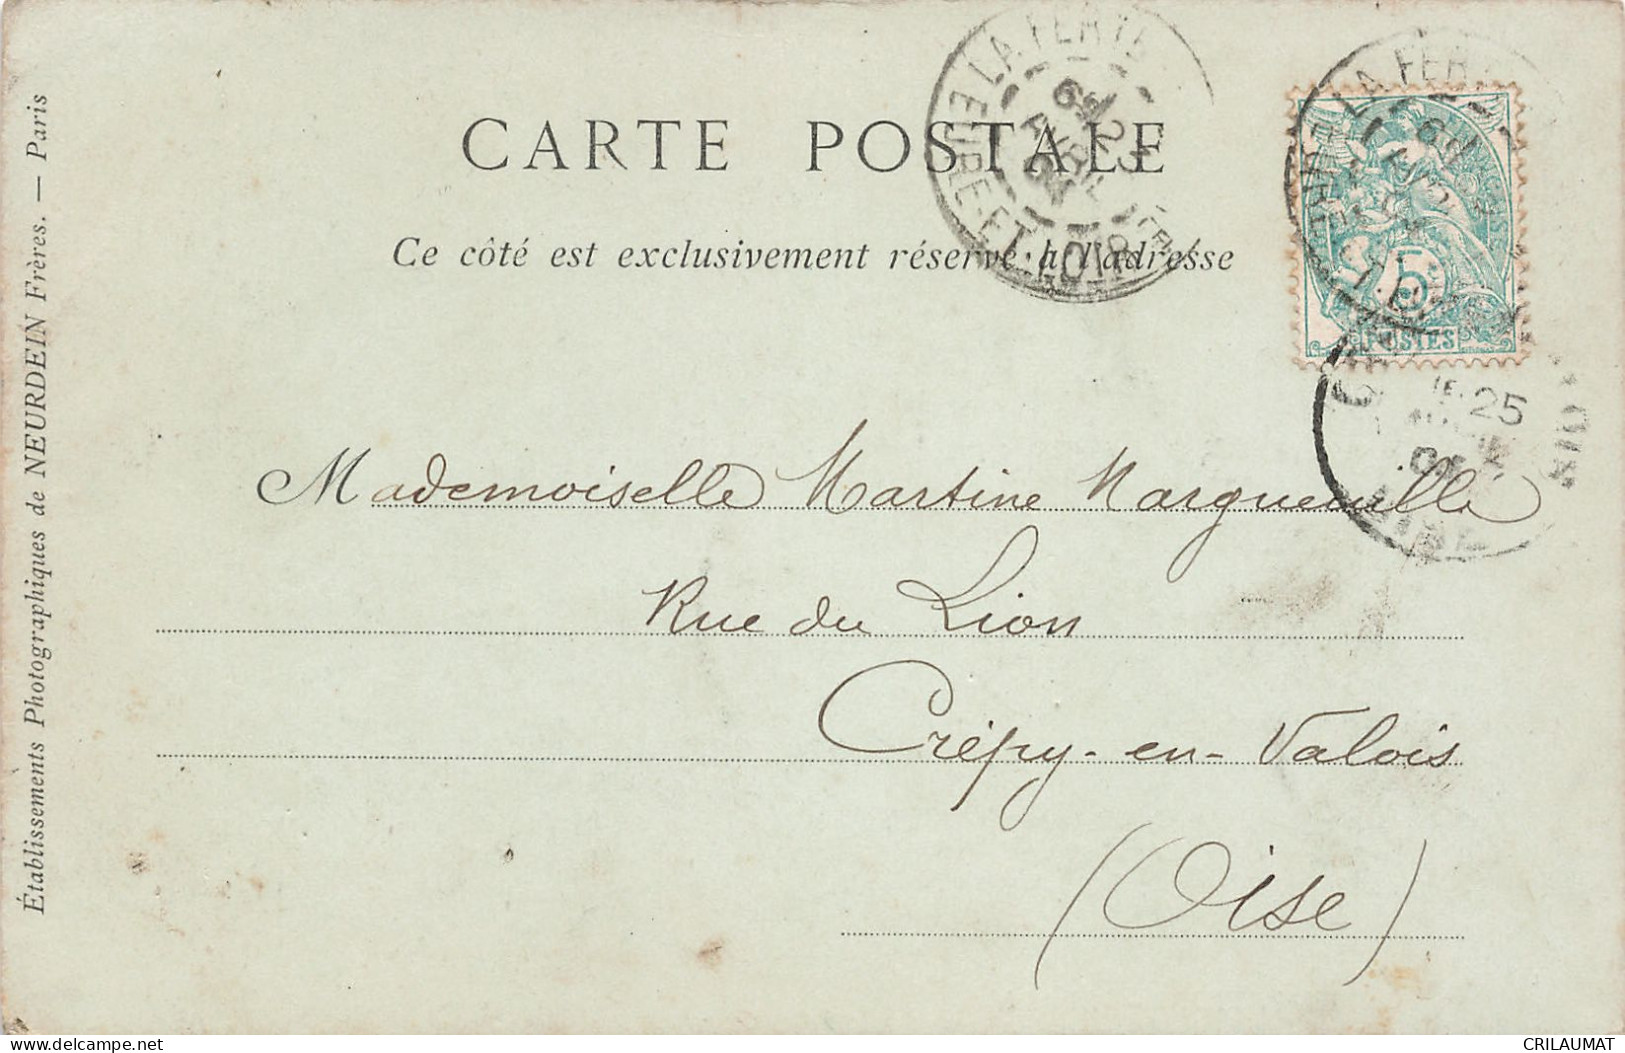 CARTE POSTALE
Ce côté est exclusivement réservé à l'adresse
LA FERTÉ
EURE-ET-LOIR
5
POSTES
25
Mademoiselle Martine Margueuille
Rue du Lion
Crépy-en-Valois
(Oise)
Établissements Photographiques de NEURDEIN Frères. — Paris
CRILAUMAT